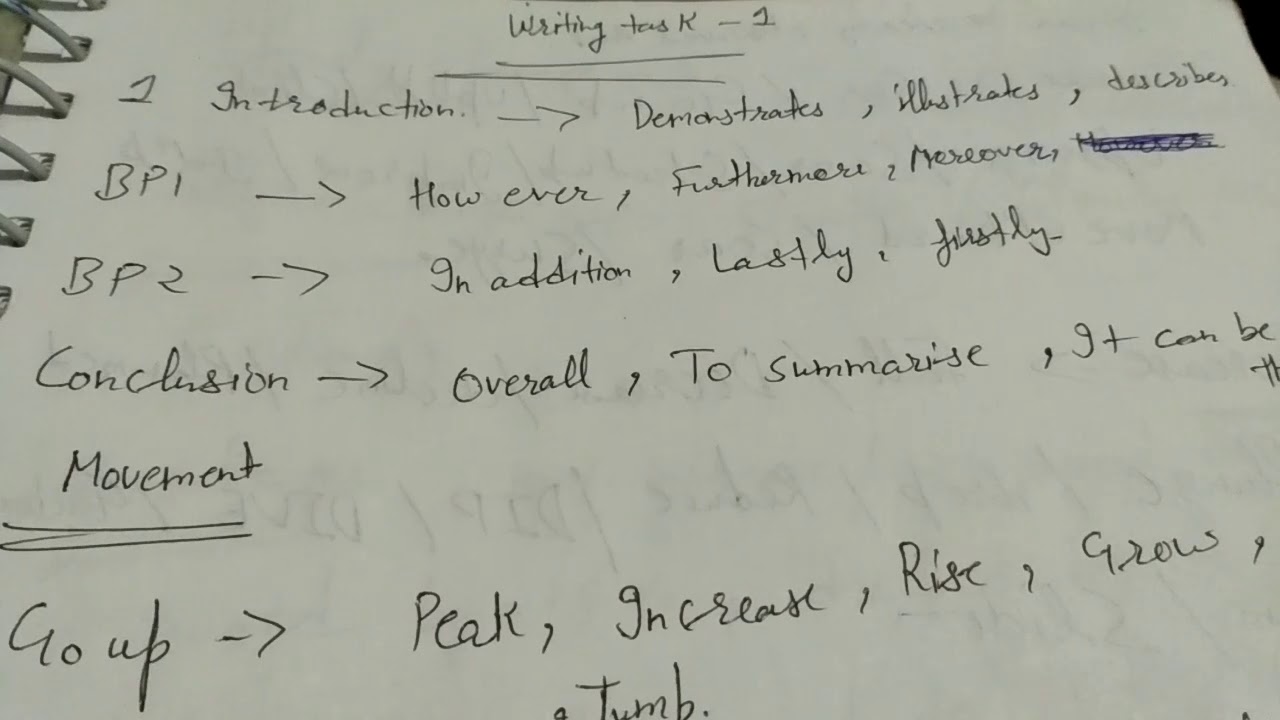 Writing task - 1
1 Introduction. -> Demonstrates, illustrates, describes
BP1 -> How ever, Furthermore, Moreover,
BP2 -> In addition, Lastly, firstly
Conclusion -> Overall, To summarise, It can be
Movement
Go up -> Peak, Increase, Rise, Grow,
, Jumb.